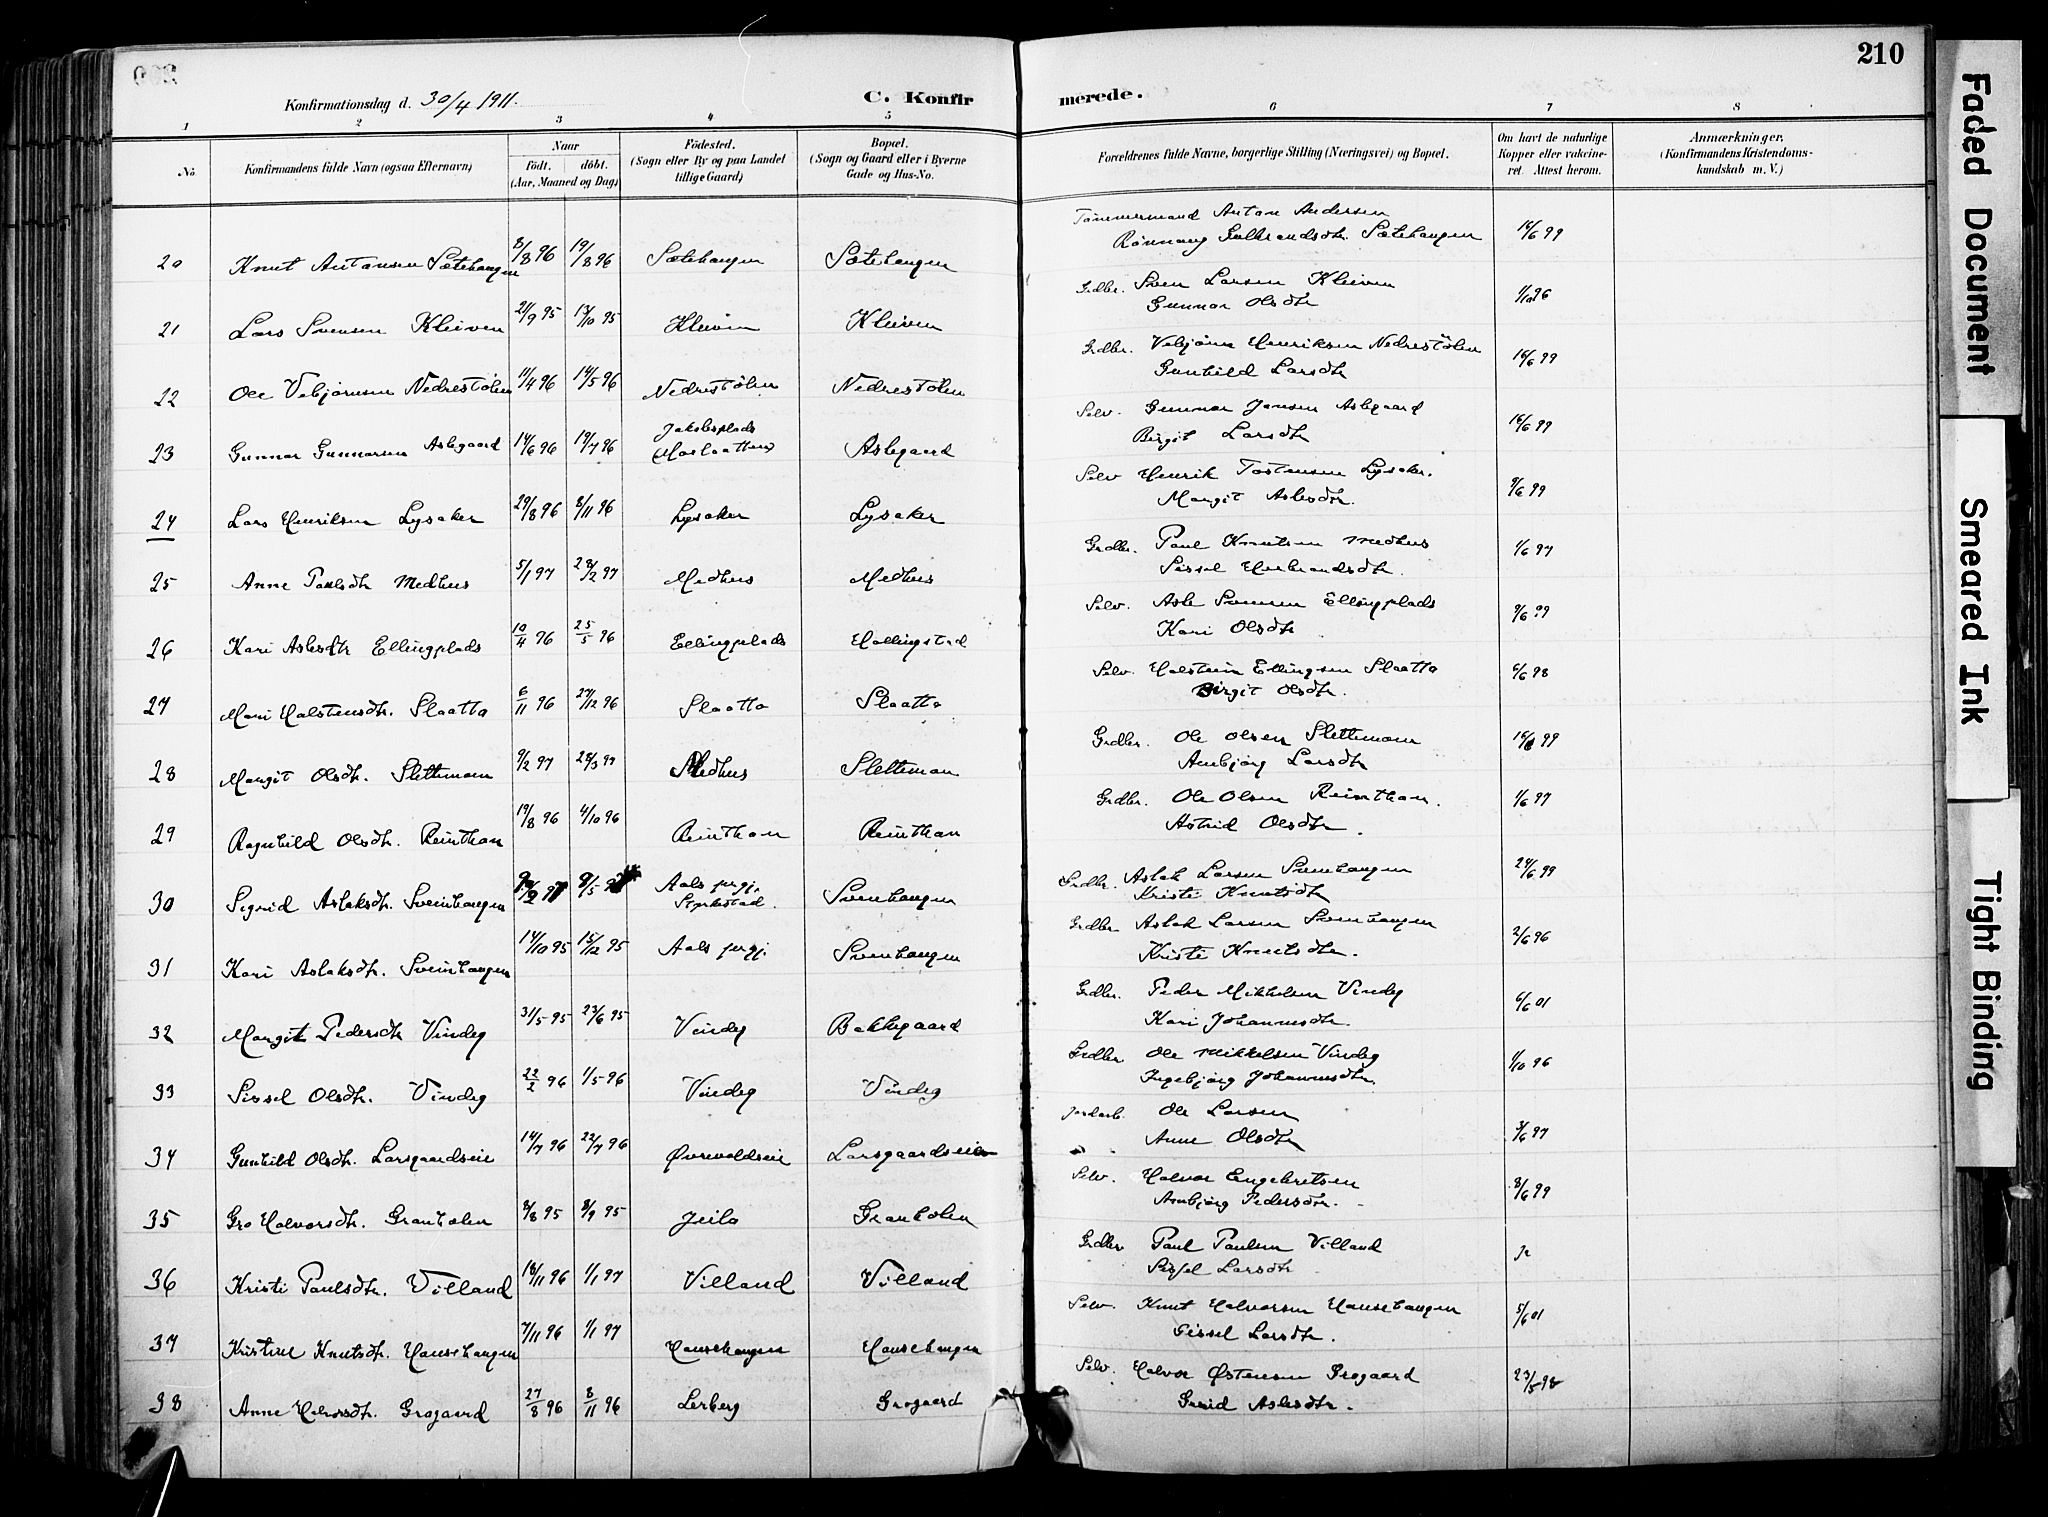 210
Konfirmationsdag d. 30/4 1911.
C. Konfirmerede.
1 2 3 4 5 6 7 8
No.
Konfirmandens fulde Navn (ogsaa Efternavn)
Naar
født. døbt.
(Aar, Maaned og Dag)
Fødested.
(Sogn eller By og paa Landet
tillige Gaard)
Bopæl.
(Sogn og Gaard eller i Byerne
Gade og Hus-No.
Forældrenes fulde Navne, borgerlige Stilling (Næringsvei) og Bopæl.
Om havt de naturlige
Kopper eller vakcineret.
Attest herom.
Anmærkninger.
(Konfirmandens Kristendomskundskab
m. V.)
20 Knut Antonsen Sætehaugen 8/8 96 19/8 96 Sætehaugen Sætehaugen Tømmermand Anton Andersen
Rønnaug Gulbrandsdtr. Sætehaugen 16/6 99
21 Lars Svensen Kleiven 21/9 95 13/10 95 Kleiven Kleiven Grdbr. Sven Larsen Kleiven
Gunnor Olsdtr 1/10 96
22 Ole Vebjørnsen Nedrestølen 11/4 96 14/5 96 Nedrestølen Nedrestølen Grdbr. Vebjørn Henriksen Nedrestölen
Gunhild Larsdtr 16/6 99
23 Gunnar Gunnarsen Aslegaard 14/6 96 19/7 96 Jakobsplads Aslegaard Selv. Gunnar Jensen Aslegaard
Birgit Larsdtr 16/6 99
24 Lars Henriksen Lysaker 29/8 96 8/11 96 Lysaker Lysaker Selv Henrik Tostensen Lysaker.
Margit Aslesdtr. 9/6 99
25 Anne Paulsdtr Medhus 5/1 97 28/2 97 Medhus Medhus Grdbr. Paul Knutsen Medhus
Sissel Herbrandsdtr. 1/6 97
26 Kari Aslesdtr Ellingplads 10/4 96 25/5 96 Ellingplads Hallingstad Selv. Asle Svensen Ellingplads
Kari Olsdtr 9/6 99
27 Mari Halstensdtr. Slaatto 6/11 96 27/12 96 Slaatto Slaatto Selv. Halstein Ellingsen Slaatto
Birgit Olsdtr. 6/6 98
28 Margit Olsdtr. Slettemoen 9/2 97 28/3 97 Medhus Slettemoen Grdbr. Ole Olsen Slettemoen
Ambjørg Larsdtr 16/6 99
29 Ragnhild Olsdtr. Reinthon 19/8 96 4/10 96 Reinthon Reinthon Grdbr. Ole Olsen Reinthon.
Astrid Olsdtr. 1/6 97
30 Sigrid Aslaksdtr. Sveinhaugen Aals prgj. Sveinhaugen Grdbr. Aslak Larsen Sveinhaugen
Kristi Knutsdtr 24/6 99
31 Kari Aslaksdtr. Sveinhaugen 14/10 95 15/12 95 Aals prgj. Sveinhaugen Grdbr Aslak Larsen Sveinhaugen
Kristi Knutsdtr. 2/6 96
32 Margit Pedersdtr Vindeg 31/5 95 23/6 95 Vindeg Bakkegaard Grdbr. Peder Mikkelsen Vindeg
Kari Johannesdtr. 6/6 01
33 Sissel Olsdtr. Vindeg 22/2 96 1/5 96 Vindeg Vindeg Grdbr Ole Mikkelsen Vindeg
Ingebjørg Johannesdtr. 1/10 96
34 Gunhild Olsdtr. Larsgaardseie 14/7 96 22/7 96 Øvrevoldseie Larsgaardseie Jordarb. Ole Larsen
Anne Olsdtr 3/6 97
35 Gro Halvorsdtr. Granholen 2/8 95 8/9 95 Jeilo Granholen Selv. Halvor Engebretsen
Ambjørg Pedersdtr. 8/6 99
36 Kristi Paulsdtr. Villand 18/11 96 1/1 97 Villand Villand Grdbr Paul Paulsen Villand
Sissel Larsdtr. Ja
37 Kristine Knutsdtr. Hansehaugen 7/11 96 1/1 97 Hansehaugen Hansehaugen Selv. Knut Halvorsen Hansehaugen
Sissel Larsdtr. 5/6 01
38 Anne Halvorsdtr. Grøgaard 27/8 96 8/11 96 Lerberg Grøgaard Selv. Halvor Østensen Grøgaard
Aslesdtr. 23/5 98
Faded Document
Smeared Ink
Tight Binding